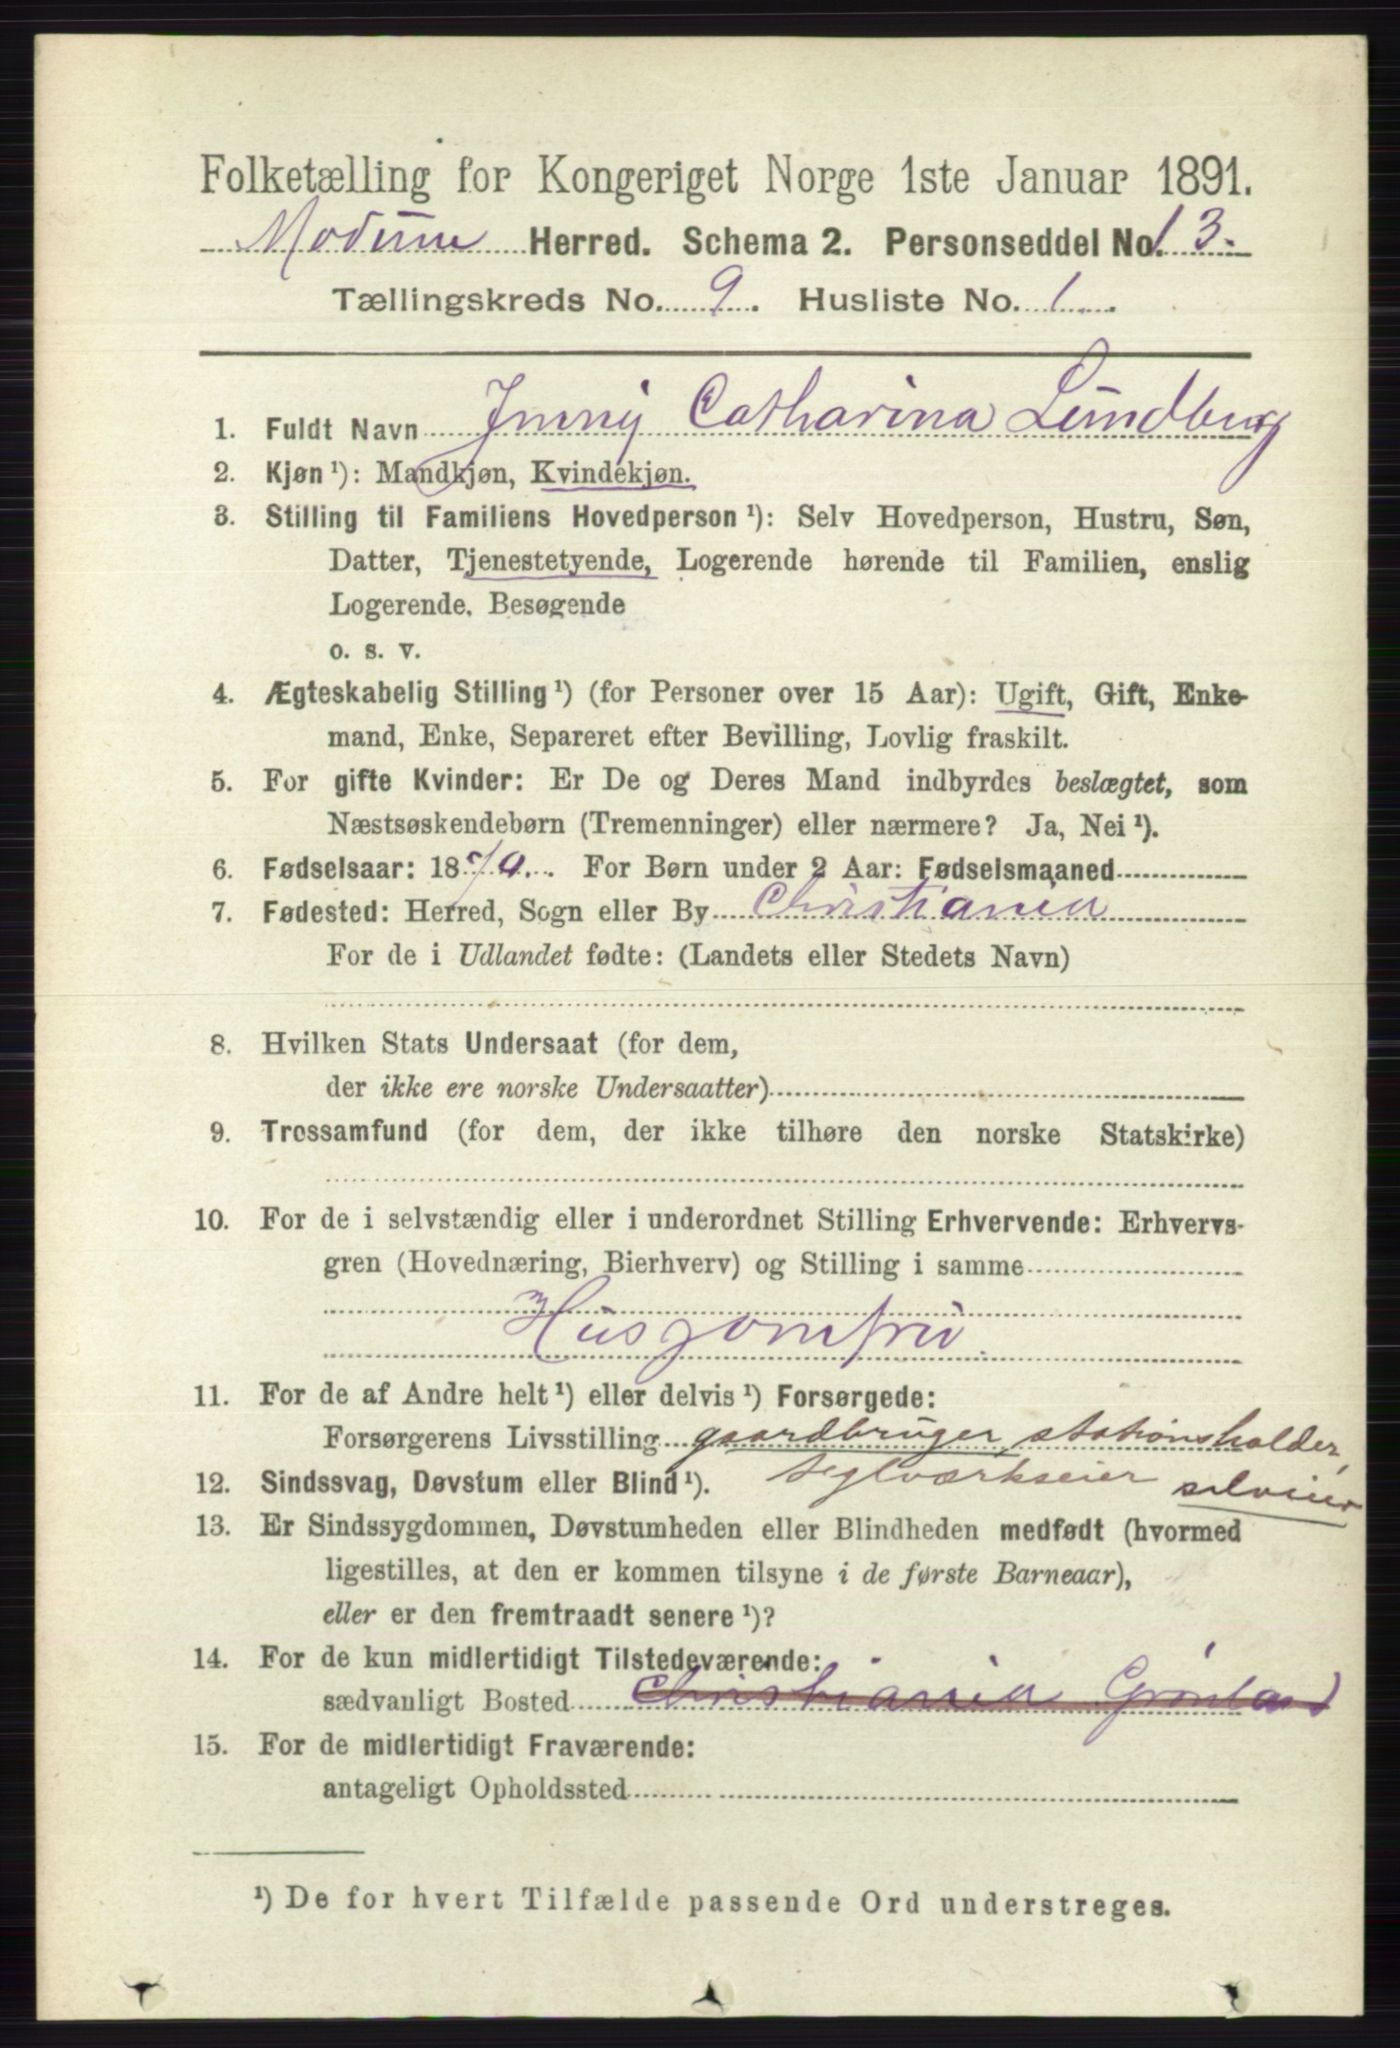 Folketælling for Kongeriget Norge 1ste Januar 1891.
Modum Herred. Schema 2. Personseddel No. 13.
Tællingskreds No. 9. Husliste No. 1.
1. Fuldt Navn Jenny Catharina Lundberg
2. Kjøn ¹): Mandkjøn, Kvindekjøn.
3. Stilling til Familiens Hovedperson ¹): Selv Hovedperson, Hustru, Søn,
Datter, Tjenestetyende, Logerende hørende til Familien, enslig
Logerende, Besøgende
o. s. v.
4. Ægteskabelig Stilling ¹) (for Personer over 15 Aar): Ugift, Gift, Enke-
mand, Enke, Separeret efter Bevilling, Lovlig fraskilt.
5. For gifte Kvinder: Er De og Deres Mand indbyrdes beslægtet, som
Næstsøskendebørn (Tremenninger) eller nærmere? Ja, Nei ¹).
6. Fødselsaar: 1870. For Børn under 2 Aar: Fødselsmaaned
7. Fødested: Herred, Sogn eller By Christiania
For de i Udlandet fødte: (Landets eller Stedets Navn)
8. Hvilken Stats Undersaat (for dem,
der ikke ere norske Undersaatter)
9. Trossamfund (for dem, der ikke tilhøre den norske Statskirke)
10. For de i selvstændig eller i underordnet Stilling Erhvervende: Erhvervs-
gren (Hovednæring, Bierhverv) og Stilling i samme
Husjomfru.
11. For de af Andre helt ¹) eller delvis ¹) Forsørgede:
Forsørgerens Livsstilling gaardbruger, stationsholder,
12. Sindssvag, Døvstum eller Blind ¹). teglværkseier
13. Er Sindssygdommen, Døvstumheden eller Blindheden medfødt (hvormed
ligestilles, at den er kommen tilsyne i de første Barneaar),
eller er den fremtraadt senere ¹)?
14. For de kun midlertidigt Tilstedeværende:
sædvanligt Bosted Christiania Grønland
15. For de midlertidigt Fraværende:
antageligt Opholdssted
¹) De for hvert Tilfælde passende Ord understreges.